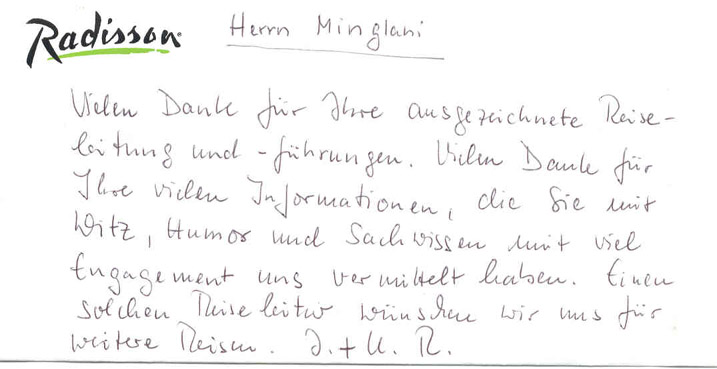 Radisson
Herrn Minglani
Vielen Dank für Ihre ausgezeichnete Reise-
leitung und -führungen. Vielen Dank für
Ihre vielen Informationen, die Sie mit
Witz, Humor und Sachwissen mit viel
Engagement uns vermittelt haben. Einen
solchen Reiseleiter wünschen wir uns für
weitere Reisen. J. + U. R.